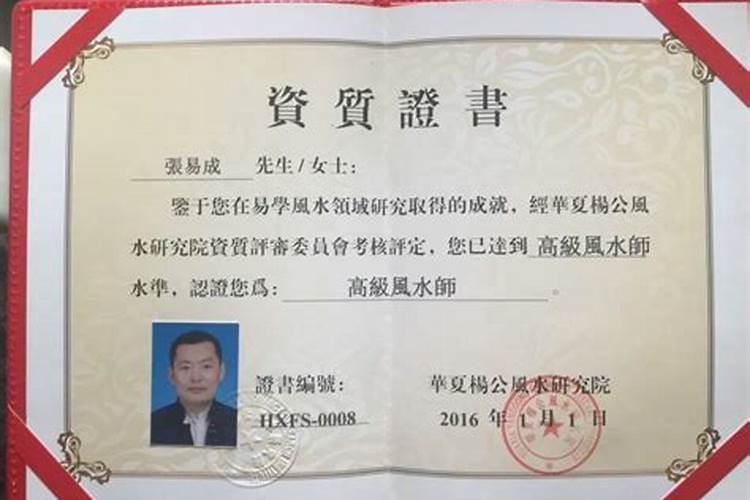 資質證書
張易成 先生/女士：
鑒于您在易學風水領域研究取得的成就，經華夏楊公風
水研究院資質評審委員會考核評定，您已達到 高級風水師
水準，認證您爲： 高級風水師 。
證書編號：
HXFS-0008
華夏楊公風水研究院
2016 年 1 月 1 日